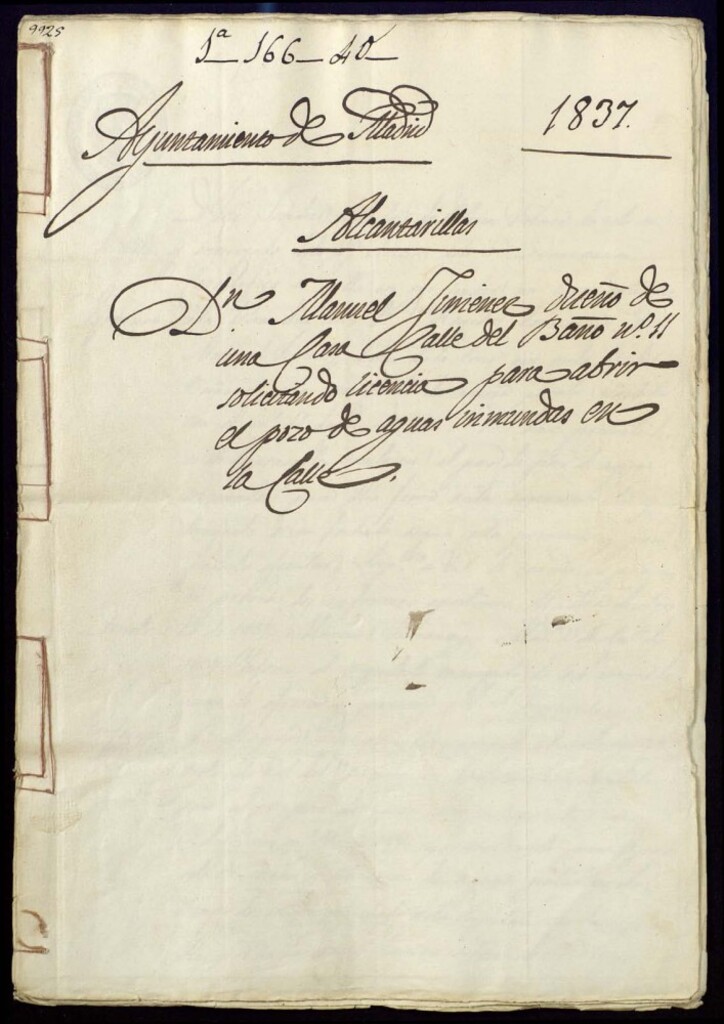 9925
1ª 166-40
Ayuntamiento de Madrid
1837.
Alcantarillas
Dn Manuel Jimenez dueño de
una Casa Calle del Baño nº. 11
solicitando licencia para abrir
el pozo de aguas inmundas en
la Calle.